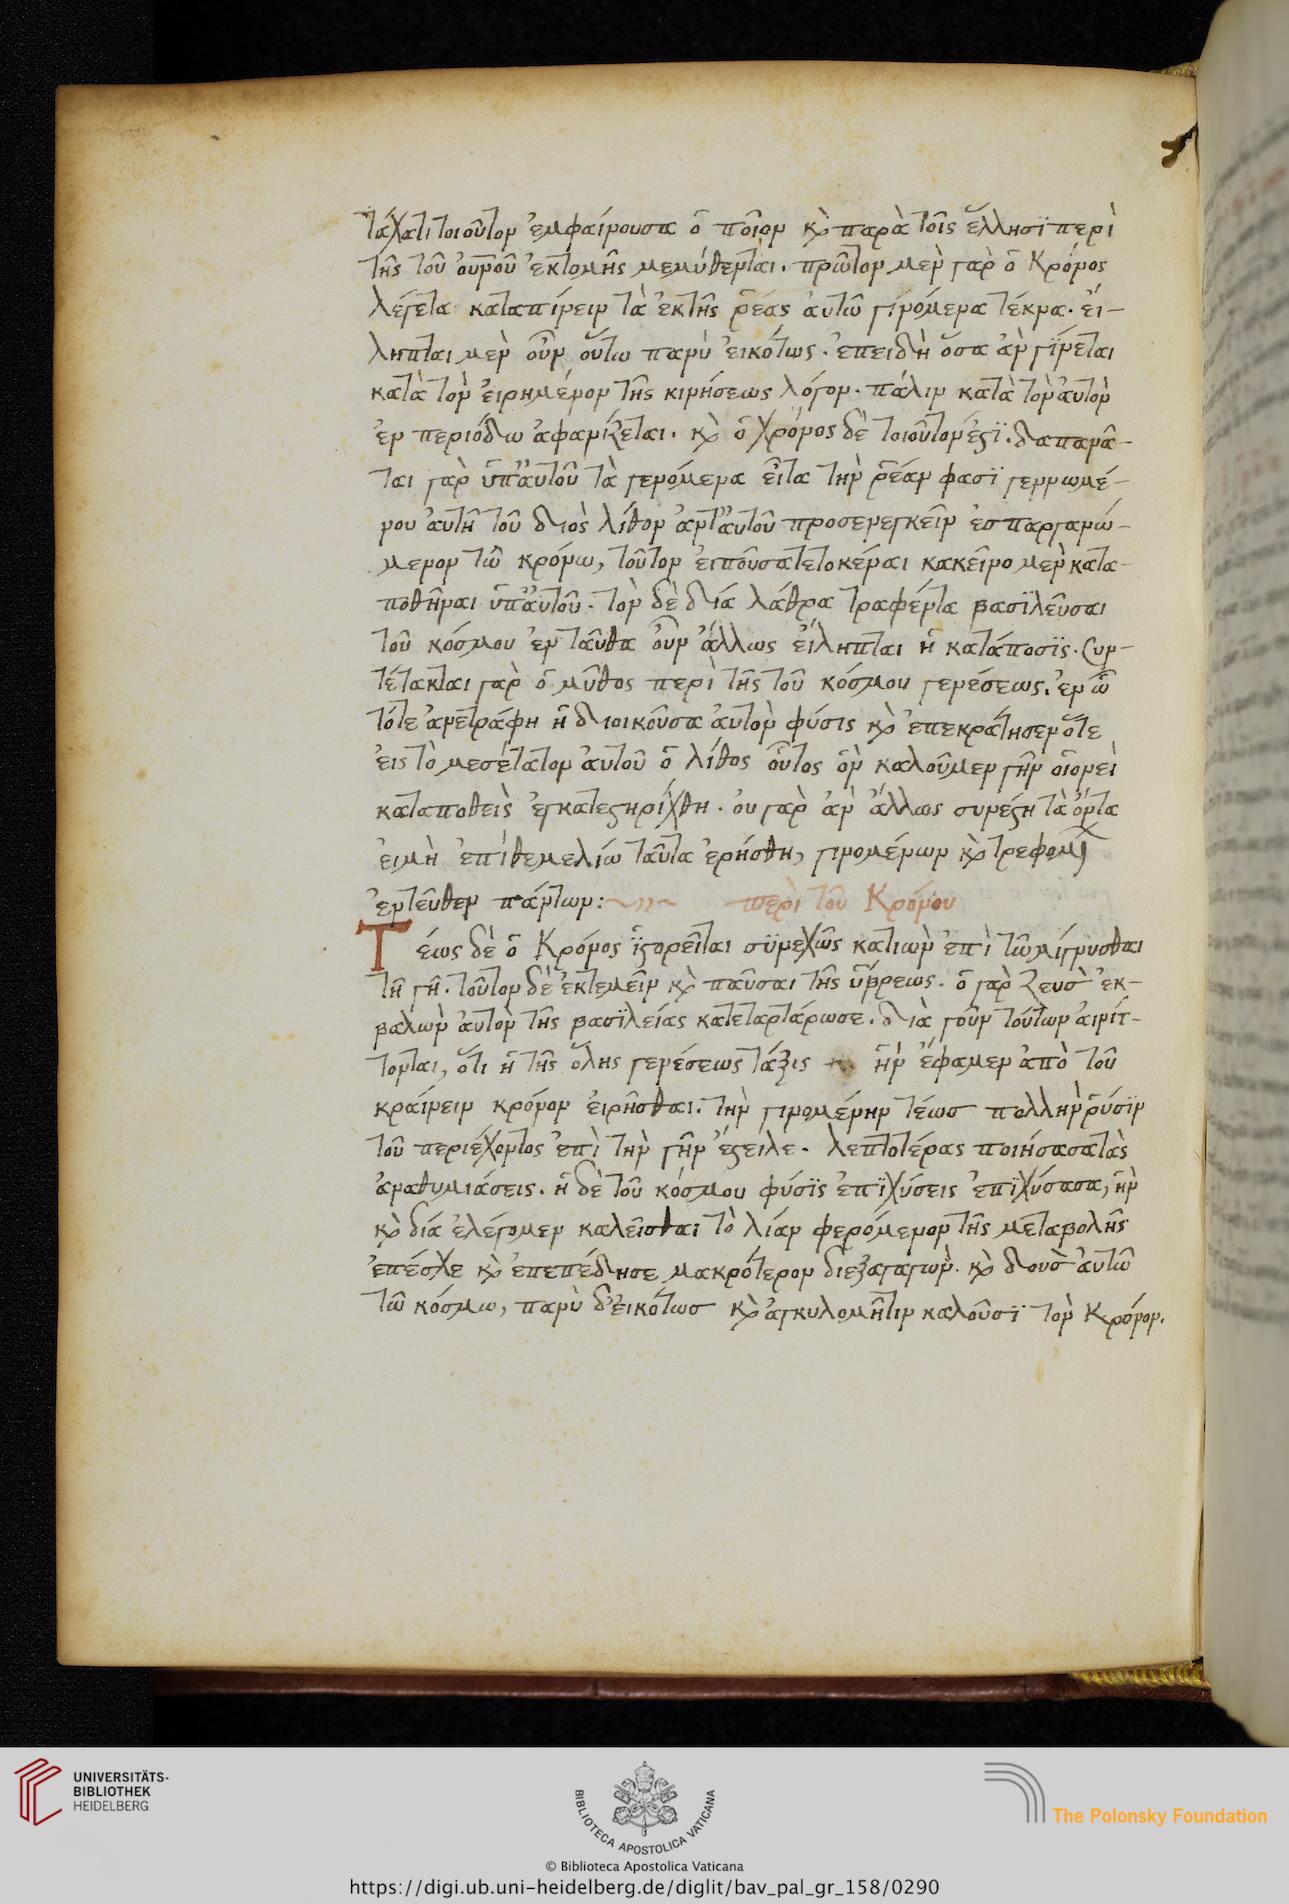 τάχατι τοιοῦτον ἐμφαίνουσα ὁ ποῖον κ̀ παρὰ τοῖς ἕλλησϊ περὶ
τῆς τοῦ οὐνοῦ ἐκτομῆς μεμύθενται. πρῶτον μὲν γὰρ ὁ Κρόνος
λέγεται καταπίνειν τὰ ἐκ τῆς ῥέας ἀυτῶ γινόμενα τέκνα. ἐί-
ληπται μὲν οὖν οὕτω πανὺ εἰκότως. ἐπειδὴ ὅσα ἂν γΐνεται
κατὰ τὸν ἐιρημένον τῆς κινήσεως λόγον. πάλιν κατὰ τὸν ἀυτὸν
ἐν περιόδω ἀφανίζεται. κ̀ ὁ χρόνος δὲ τοιοῦτον ἐϛϊ. δαπανᾶ-
ται γὰρ ὑπ' ἀυτοῦ τὰ γενόμενα εἶτα τὴν ῥέαν φασΐ γεννωμέ-
νου ἀυτῆ τοῦ διὸς λίθον ἀντ' ἀυτοῦ προσενεγκεῖν ἐσπαργανώ-
μενον τῶ κρόνω, τοῦτον ἐιποῦσα τετοκέναι κακεῖνο μὲν κατα-
ποθῆναι ὑπ' ἀυτοῦ. τὸν δὲ δία λάθρα τραφέντα βασϊλεῦσαι
τοῦ κόσμου ἐν ταῦθα οὖν ἄλλως ἐίληπται ἡ κατάποσϊς. Συν-
τέτακται γὰρ ὁ μῦθος περὶ τῆς τοῦ κόσμου γενέσεως. ἐν ὧ
τότε ἀνετράφη ἡ διοικοῦσα ἀυτὸν φύσις κ̀ ἐπεκράτησεν ὅτε
ἐις τὸ μεσέτατον ἀυτοῦ ὁ λίθος οὗτος ὃν καλοῦμεν γῆν οἱονεὶ
καταποθεὶς ἐγκατεϛηρίχθη. ου γὰρ ἂν ἄλλως συνέϛη τὰ ὄντα
ἐιμὴ ἐπὶ θεμελίω ταῦτα ἐρήσθη, γινομένων κ̀ τρεφομ
ἐντεῦθεν πάντων: περὶ τοῦ Κρόνου
Τέως δὲ ὁ Κρόνος ἱϛορεῖται σϋνεχῶς κατιὼν ἐπὶ τῶ μίγνυσθαι
τῆ γῆ. τοῦτον δὲ ἐκτεμεῖν κ̀ παῦσαι τῆς ὕβρεως. ὁ γὰρ Ζευσ ἐκ-
βαλὼν ἀυτὸν τῆς βασϊλείας κατεταρτάρωσε. διὰ γοῦν τούτων ἀινίτ-
τονται, ὅτι ἡ τῆς ὅλης γενέσεως τάξις ἣν ἔφαμεν ἀπὸ τοῦ
κραίνειν κρόνον ἐιρῆσθαι. τὴν γινομένην τέωσ πολλὴν ῥύσϊν
τοῦ περιέχοντος ἐπὶ τὴν γῆν ἔϛειλε. λεπτοτέρας ποιήσασα τὰς
ἀναθυμιάσεις. ἡ δὲ τοῦ κόσμου φύσϊς ἐπϊχύσεις ἐπϊχύσασα, ἣν
κ̀ δία ἐλέγομεν καλεῖσθαι τὸ λίαν φερόμενον τῆς μεταβολῆς
ἐπέσχε κ̀ ἐπεπέδησε μακρότερον διεξαγαγὼν. κ̀ δοὺσ ἀυτῶ
τῶ κόσμω, πανὺ δ' εἰκότωσ κ̀ ἀγκυλομῆτιν καλοῦσΐ τὸν Κρόνον.
UNIVERSITÄTS-
BIBLIOTHEK
HEIDELBERG
BIBLIOTECA APOSTOLICA VATICANA
The Polonsky Foundation
© Biblioteca Apostolica Vaticana
https://digi.ub.uni-heidelberg.de/diglit/bav_pal_gr_158/0290